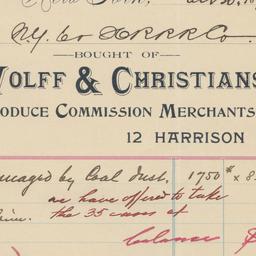 New York,
N.Y. Co & H.R.R.R Co.
BOUGHT OF
WOLFF & CHRISTIANS
ODUCE COMMISSION MERCHANTS
12 HARRISON
amaged by Coal dust. 1750 # x 8
we have offered to take
the 35 cases at
balance $